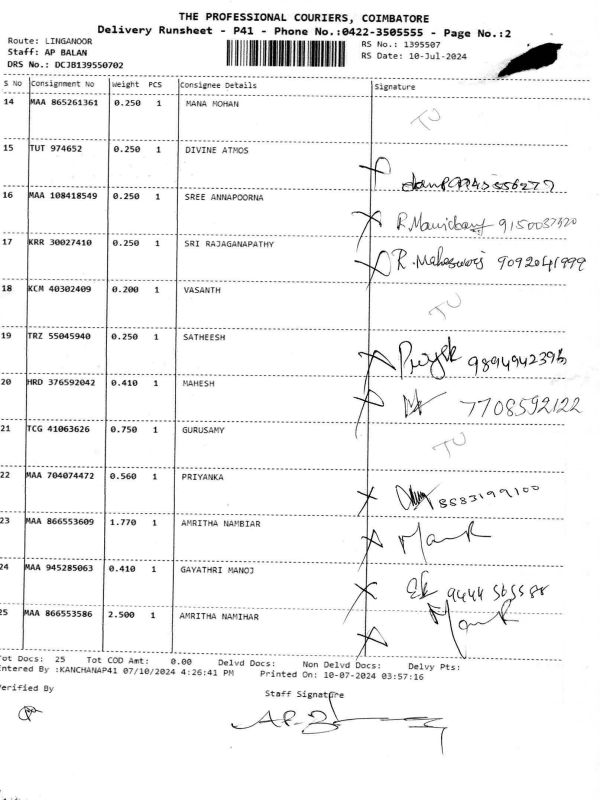 THE PROFESSIONAL COURIERS, COIMBATORE
Delivery Runsheet - P41 - Phone No.:0422-3505555 - Page No.:2
Route: LINGANOOR
RS No.: 1395507
Staff: AP BALAN
RS Date: 10-Jul-2024
DRS No.: DCJB139550702
S No Consignment No Weight PCS Consignee Details Signature
14 MAA 865261361 0.250 1 MANA MOHAN TU
15 TUT 974652 0.250 1 DIVINE ATMOS
16 MAA 108418549 0.250 1 SREE ANNAPOORNA
17 KRR 30027410 0.250 1 SRI RAJAGANAPATHY 9092041999
18 KCM 40302409 0.200 1 VASANTH TU
19 TRZ 55045940 0.250 1 SATHEESH
20 HRD 376592042 0.410 1 MAHESH 7708592122
21 TCG 41063626 0.750 1 GURUSAMY TU
22 MAA 704074472 0.560 1 PRIYANKA 8883199100
23 MAA 866553609 1.770 1 AMRITHA NAMBIAR
24 MAA 945285063 0.410 1 GAYATHRI MANOJ 9444 565588
25 MAA 866553586 2.500 1 AMRITHA NAMIHAR
Tot Docs: 25 Tot COD Amt: 0.00 Delvd Docs: Non Delvd Docs: Delvy Pts:
Entered By :KANCHANAP41 07/10/2024 4:26:41 PM Printed On: 10-07-2024 03:57:16
Verified By
Staff Signature